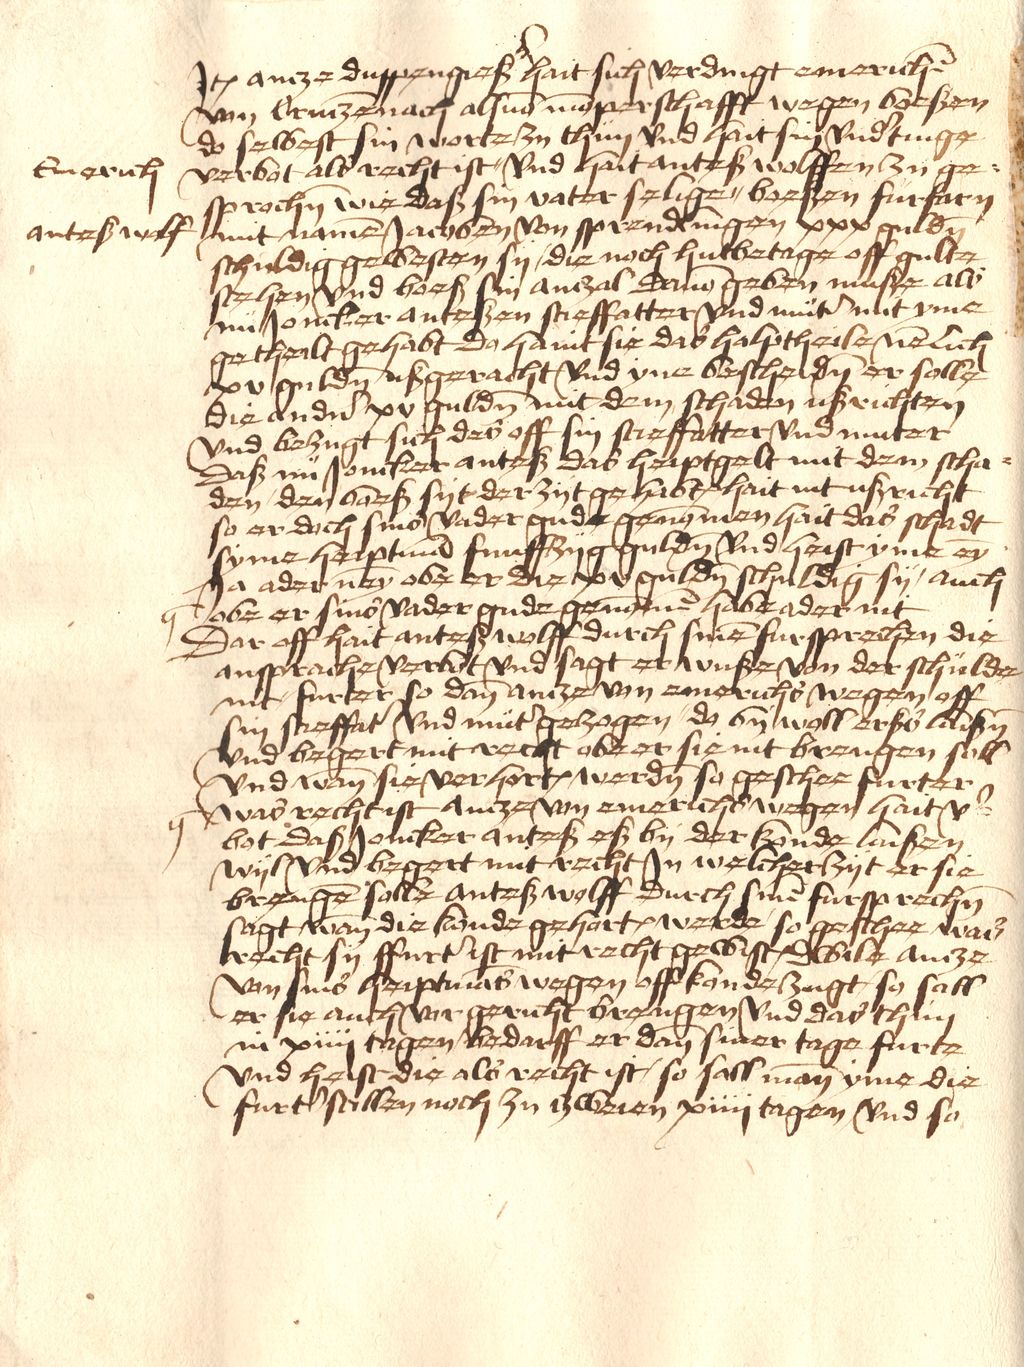 Jt(em) antze duppengieß hait sich verdingt emerich
von Crutzenach als mo(m)perschafft wegen boeßen
do selbest sin worte zu thun vnd hait sin vnd(er)tinge
Emerich
verbot als recht ist / vnd hait anteß wolffen zu ge-
sproch(e)n wie daß sin vater selige / boeßen furfarn
anteß wolf
mit name(n) Jacoben von sprendelingen xxx guld(e)n
schuldig gewesten sij / die noch hutbetage off gulte
stehen vnd boeß sin anczal dauo(n) geben muße als
nu Joncker anteßen stieffatter vnd mut(er) mit yme
getheilt gehabt do haint sie das halptheile ne(m)lich
xv guld(e)n ußgeracht vnd yne bescheid(e)n er solle
die and(er)n xv guld(e)n mit dem schaden ußrichten
vnd bezugt sich des off sin stieffatter vnd muter
daß nu Joncker anteß das heiptgelt mit dem scha-
den / den boeß sijt der zijt gehabt / hait nit ußricht
so er doch sins vader gude genom(m)en hait das schadt
syme heiptma(n) funffzijg guld(e)n vnd heist yme ey(n)
Ja ader ney(n) obe er die xv guld(e)n schuldig sij / auch
obe er sins vader gude genom(m)e(n) habe ader nit
Dar off hait anteß wolff durch sine(n) fursprechen die
ansprache verbot vnd sagt er wuße von der schulde
nit / furter so dan antze von emerichs wegen off
sin stieffat(er) vnd mut(er) gezogen / do by woll erß laiß(e)n
vnd begert mit recht obe er sie nit brengen soll
vnd wan sie verhort werd(e)n so geschee furter
was recht ist antze von emerichs wegen hait v(er)-
bot daß Joncker anteß eß bij der konde laißen
wijl vnd begert mit recht In welcher zijt er sie
brenge(n) solle anteß wolff durch sine(n) fursprech(e)n
sagt wan die konde gehort werde / so geschee was
recht sij ffurt(er) ist mit recht gewist / dwile antze
von sins heiptma(n)s wegen off konde zugt / so sall
er sie auch vor gericht brengen vnd das thun
in xiiij tagen bedarff er dan siner tage furte
vnd heist die als recht ist / so sall man yme die
furt(er) stellen noch zu zweien xiiij tagen vnd so